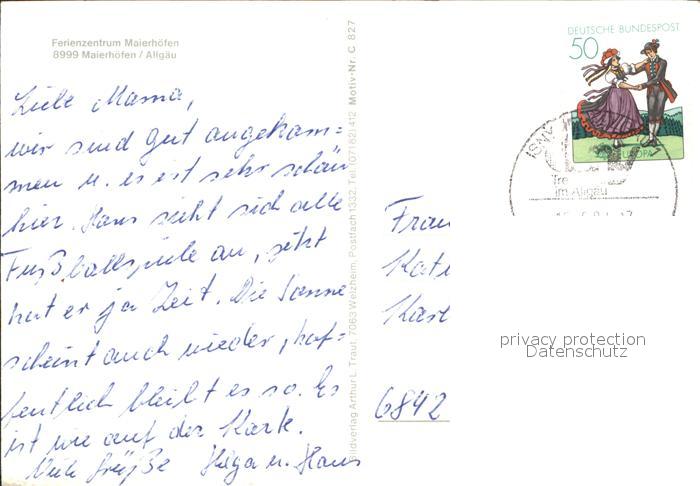 Ferienzentrum Maierhöfen
8999 Maierhöfen / Allgäu
Liebe Mama,
wir sind gut angekom=
men u. es ist sehr schön
hier. Hans sieht sich alle
Fußballspiele an, jetzt
hat er ja Zeit. Die Sonne
scheint auch wieder, hof=
fentlich bleibt es so. Es
ist wie auf der Karte.
Viele Grüße Helga u. Hans
Bildverlag Arthur L. Traut, 7063 Welzheim, Postfach 1332, Tel. (07182) 412 Motiv-Nr. C 827
DEUTSCHE BUNDESPOST
50
EUROPA
ISNY
im Allgäu
Frau
6842
privacy protection
Datenschutz